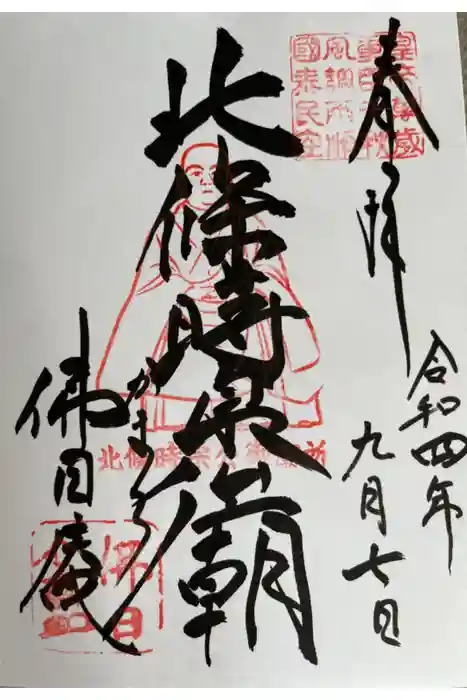 奉拝
令和四年
九月七日
北條時宗廟
かまくら
佛日庵
皇帝萬歳
重臣千秋
風調雨順
國泰民安
北條時宗公
佛日